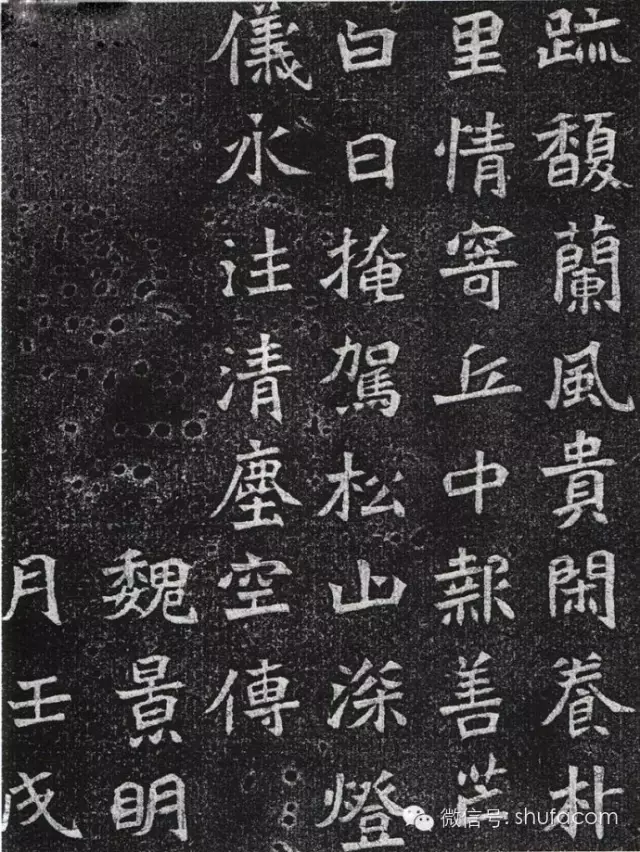 疏馥蘭風貴閑養朴
里情寄丘中報善芒
白日掩駕松山深燈
儀永注清塵空傳
魏景明
月壬戌
微信号: shufacom